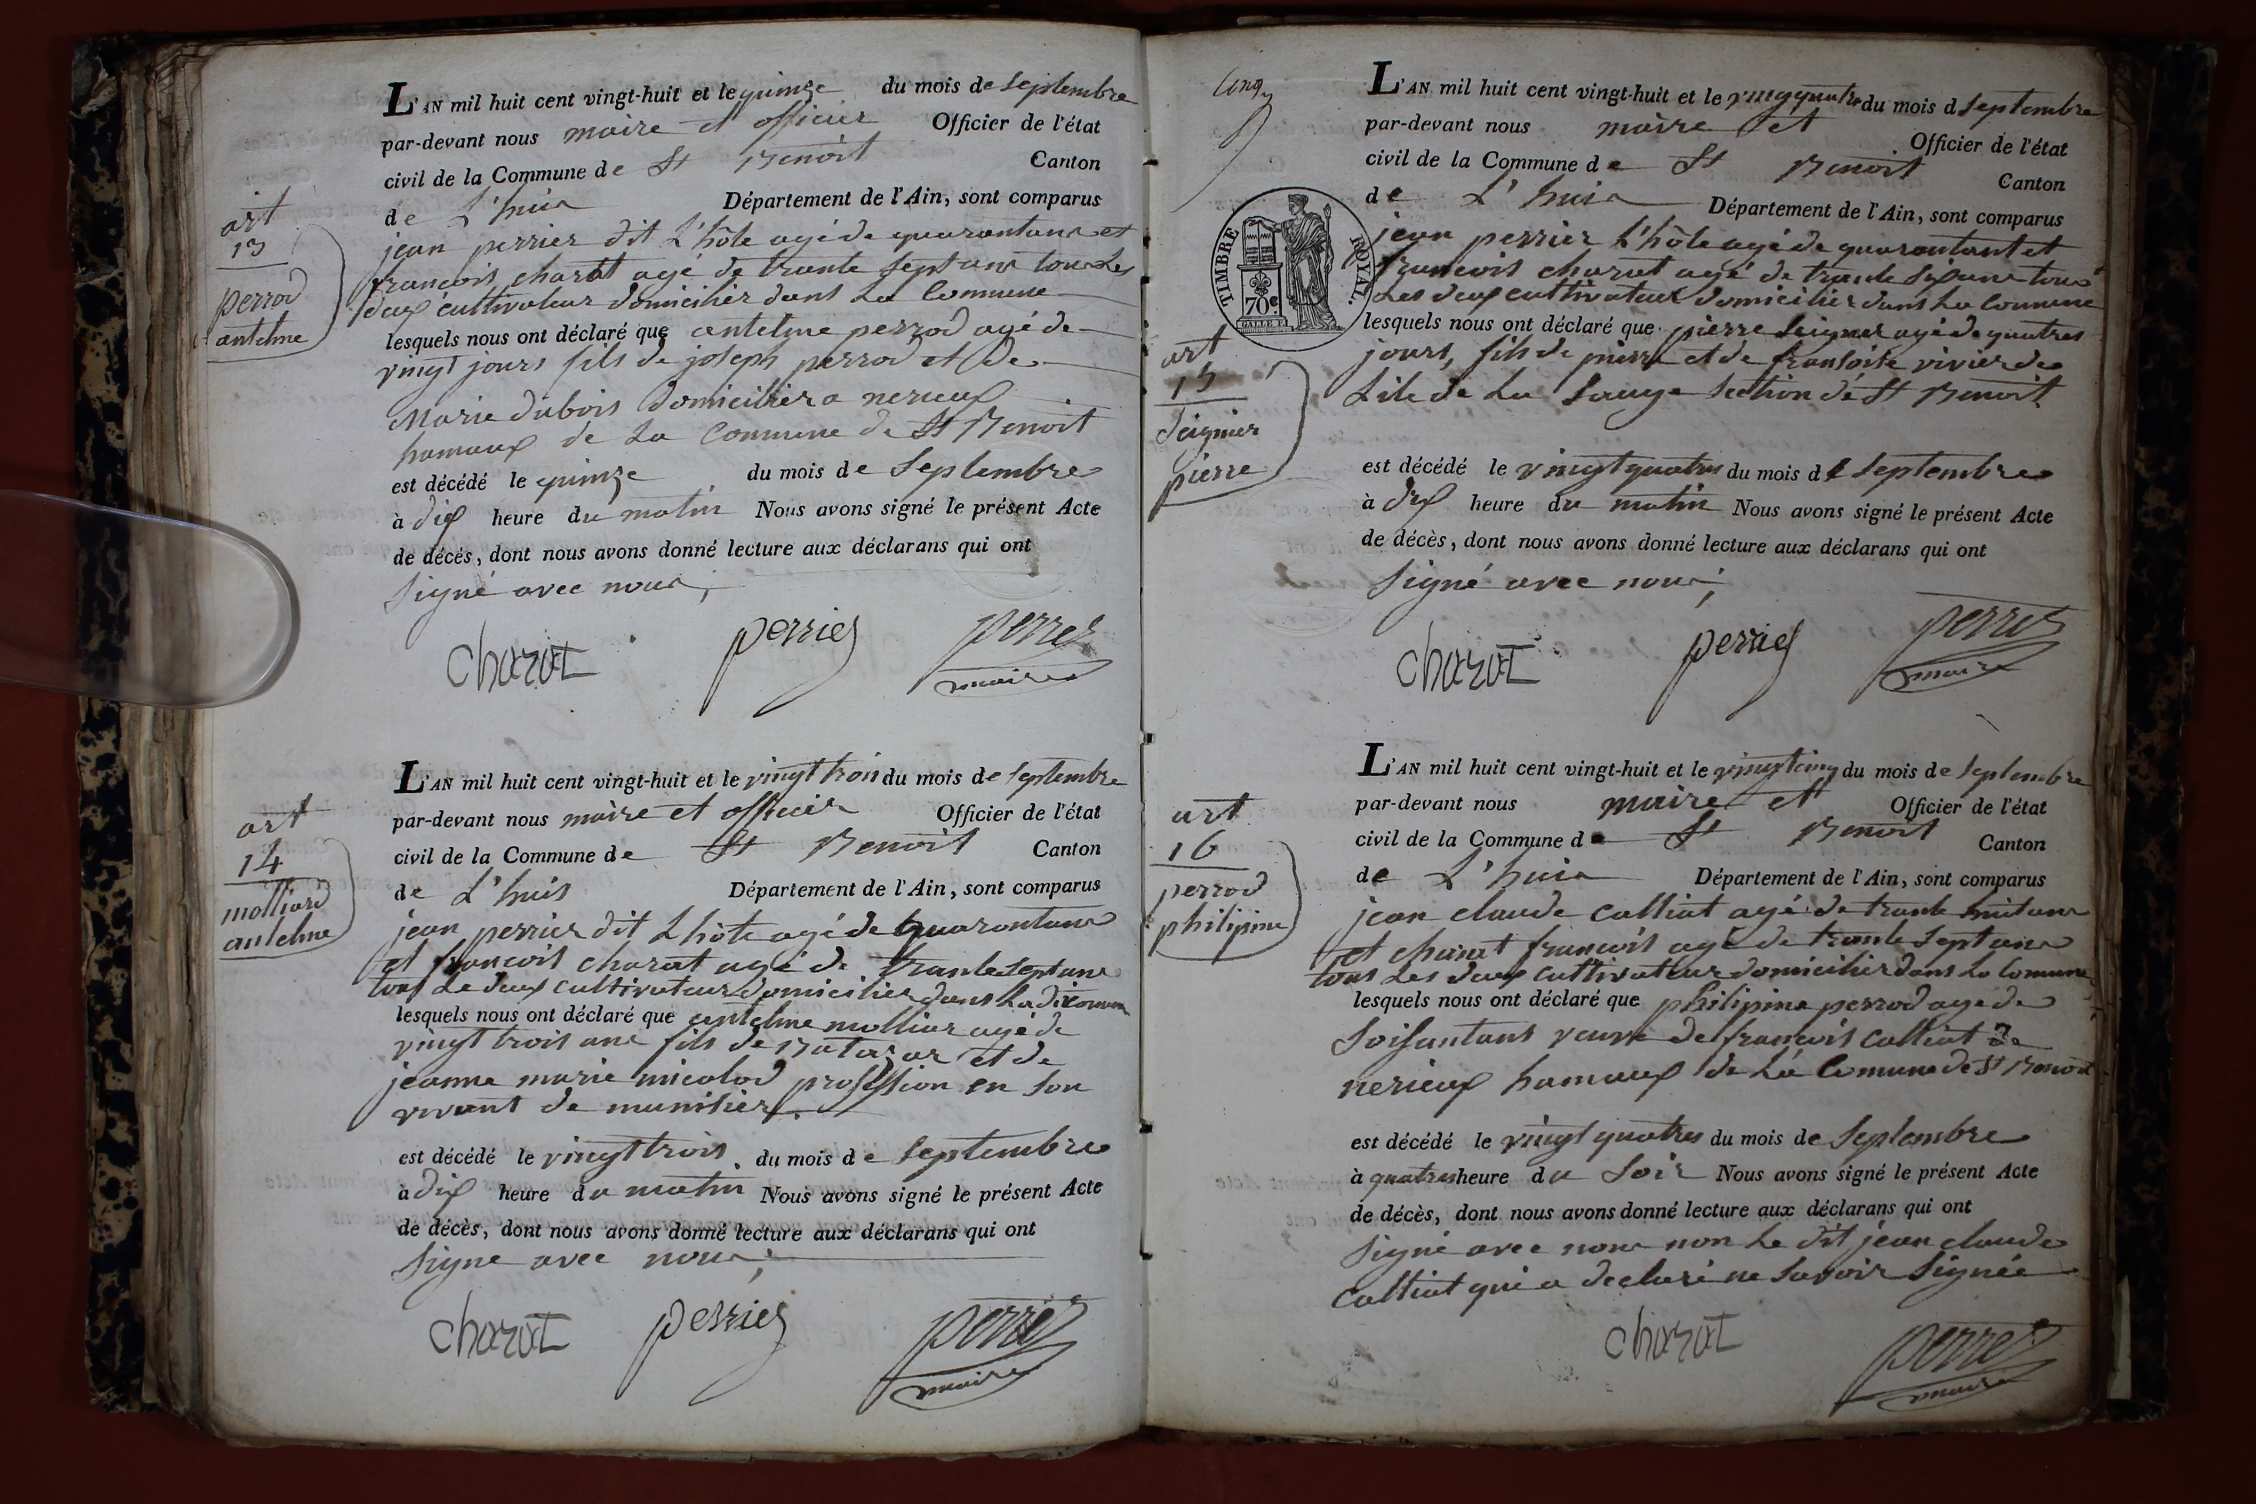 art
13
perrod
antelme
L'AN mil huit cent vingt-huit et le quinze du mois de Septembre
par-devant nous maire et officier Officier de l'état
civil de la Commune de St Benoit Canton
de L'huis Département de l'Ain, sont comparus
jean perrier dit L'hôte agé de quarantans et
francois charat agé de trante Septans tous Les
deux cultivateur domicilier dans La Commune
lesquels nous ont déclaré que antelme perrod agé de
vingt jours fils de joseph perrod et de
Marie dubois domicilier a nerieux
hamaux de La Commune de St Benoit
est décédé le quinze du mois de Septembre
à dix heure du matin Nous avons signé le présent Acte
de décès, dont nous avons donné lecture aux déclarans qui ont
Signé avec nous,
charat perrier perret
maire
art
14
molliard
antelme
L'AN mil huit cent vingt-huit et le vingt trois du mois de Septembre
par-devant nous maire et officier Officier de l'état
civil de la Commune de St Benoit Canton
de L'huis Département de l'Ain, sont comparus
jean perrier dit L'hôte agé de quarantans
et francois charat agé de trante Septans
tous Le deux cultivateur domicilier dans La dite
lesquels nous ont déclaré que antelme molliar agé de
vingt trois ans fils de Batazar et de
jeanne marie micolod profession en Son
vivant de munisier
est décédé le vingt trois du mois de Septembre
à dix heure du matin Nous avons signé le présent Acte
de décès, dont nous avons donné lecture aux déclarans qui ont
Signe avec nous,
charat perrier perret
maire
Cinq
TIMBRE ROYAL.
70c
art
15
Seignier
pierre
L'AN mil huit cent vingt-huit et le vingquatre du mois d Septembre
par-devant nous maire et Officier de l'état
civil de la Commune de St Benoit Canton
de L'huis Département de l'Ain, sont comparus
jean perrier L'hôte agé de quarantant et
francois charat agé de trante Septans tous
Les deux cultivateur domicilier dans La Commune
lesquels nous ont déclaré que pierre Seignier agé de quatres
jours, fils de pierre et de fransoise vivier de
Lile de La Sauge Section de St Benoit
est décédé le vingt quatres du mois de Septembre
à dix heure du matin Nous avons signé le présent Acte
de décès, dont nous avons donné lecture aux déclarans qui ont
Signé avec nous,
charat perrier perret
maire
art
16
perrod
philipine
L'AN mil huit cent vingt-huit et le vingt cinq du mois de Septembre
par-devant nous maire et Officier de l'état
civil de la Commune de St Benoit Canton
de L'huis Département de l'Ain, sont comparus
jean claude calliat agé de trante huitans
et charat francois agé de trante Septans
tous Les deux cultivateur domicilier dans La Comune
lesquels nous ont déclaré que philipine perrod age de
Soisantans veuve de francois calliat de
nerieux hamaux de La Comune de St Benoit
est décédé le vingt quatres du mois de Septembre
à quatres heure du Soir Nous avons signé le présent Acte
de décès, dont nous avons donné lecture aux déclarans qui ont
Signé avec nous non Le dit jean claude
calliat qui a declaré ne Savoir Signée
charat perret
maire